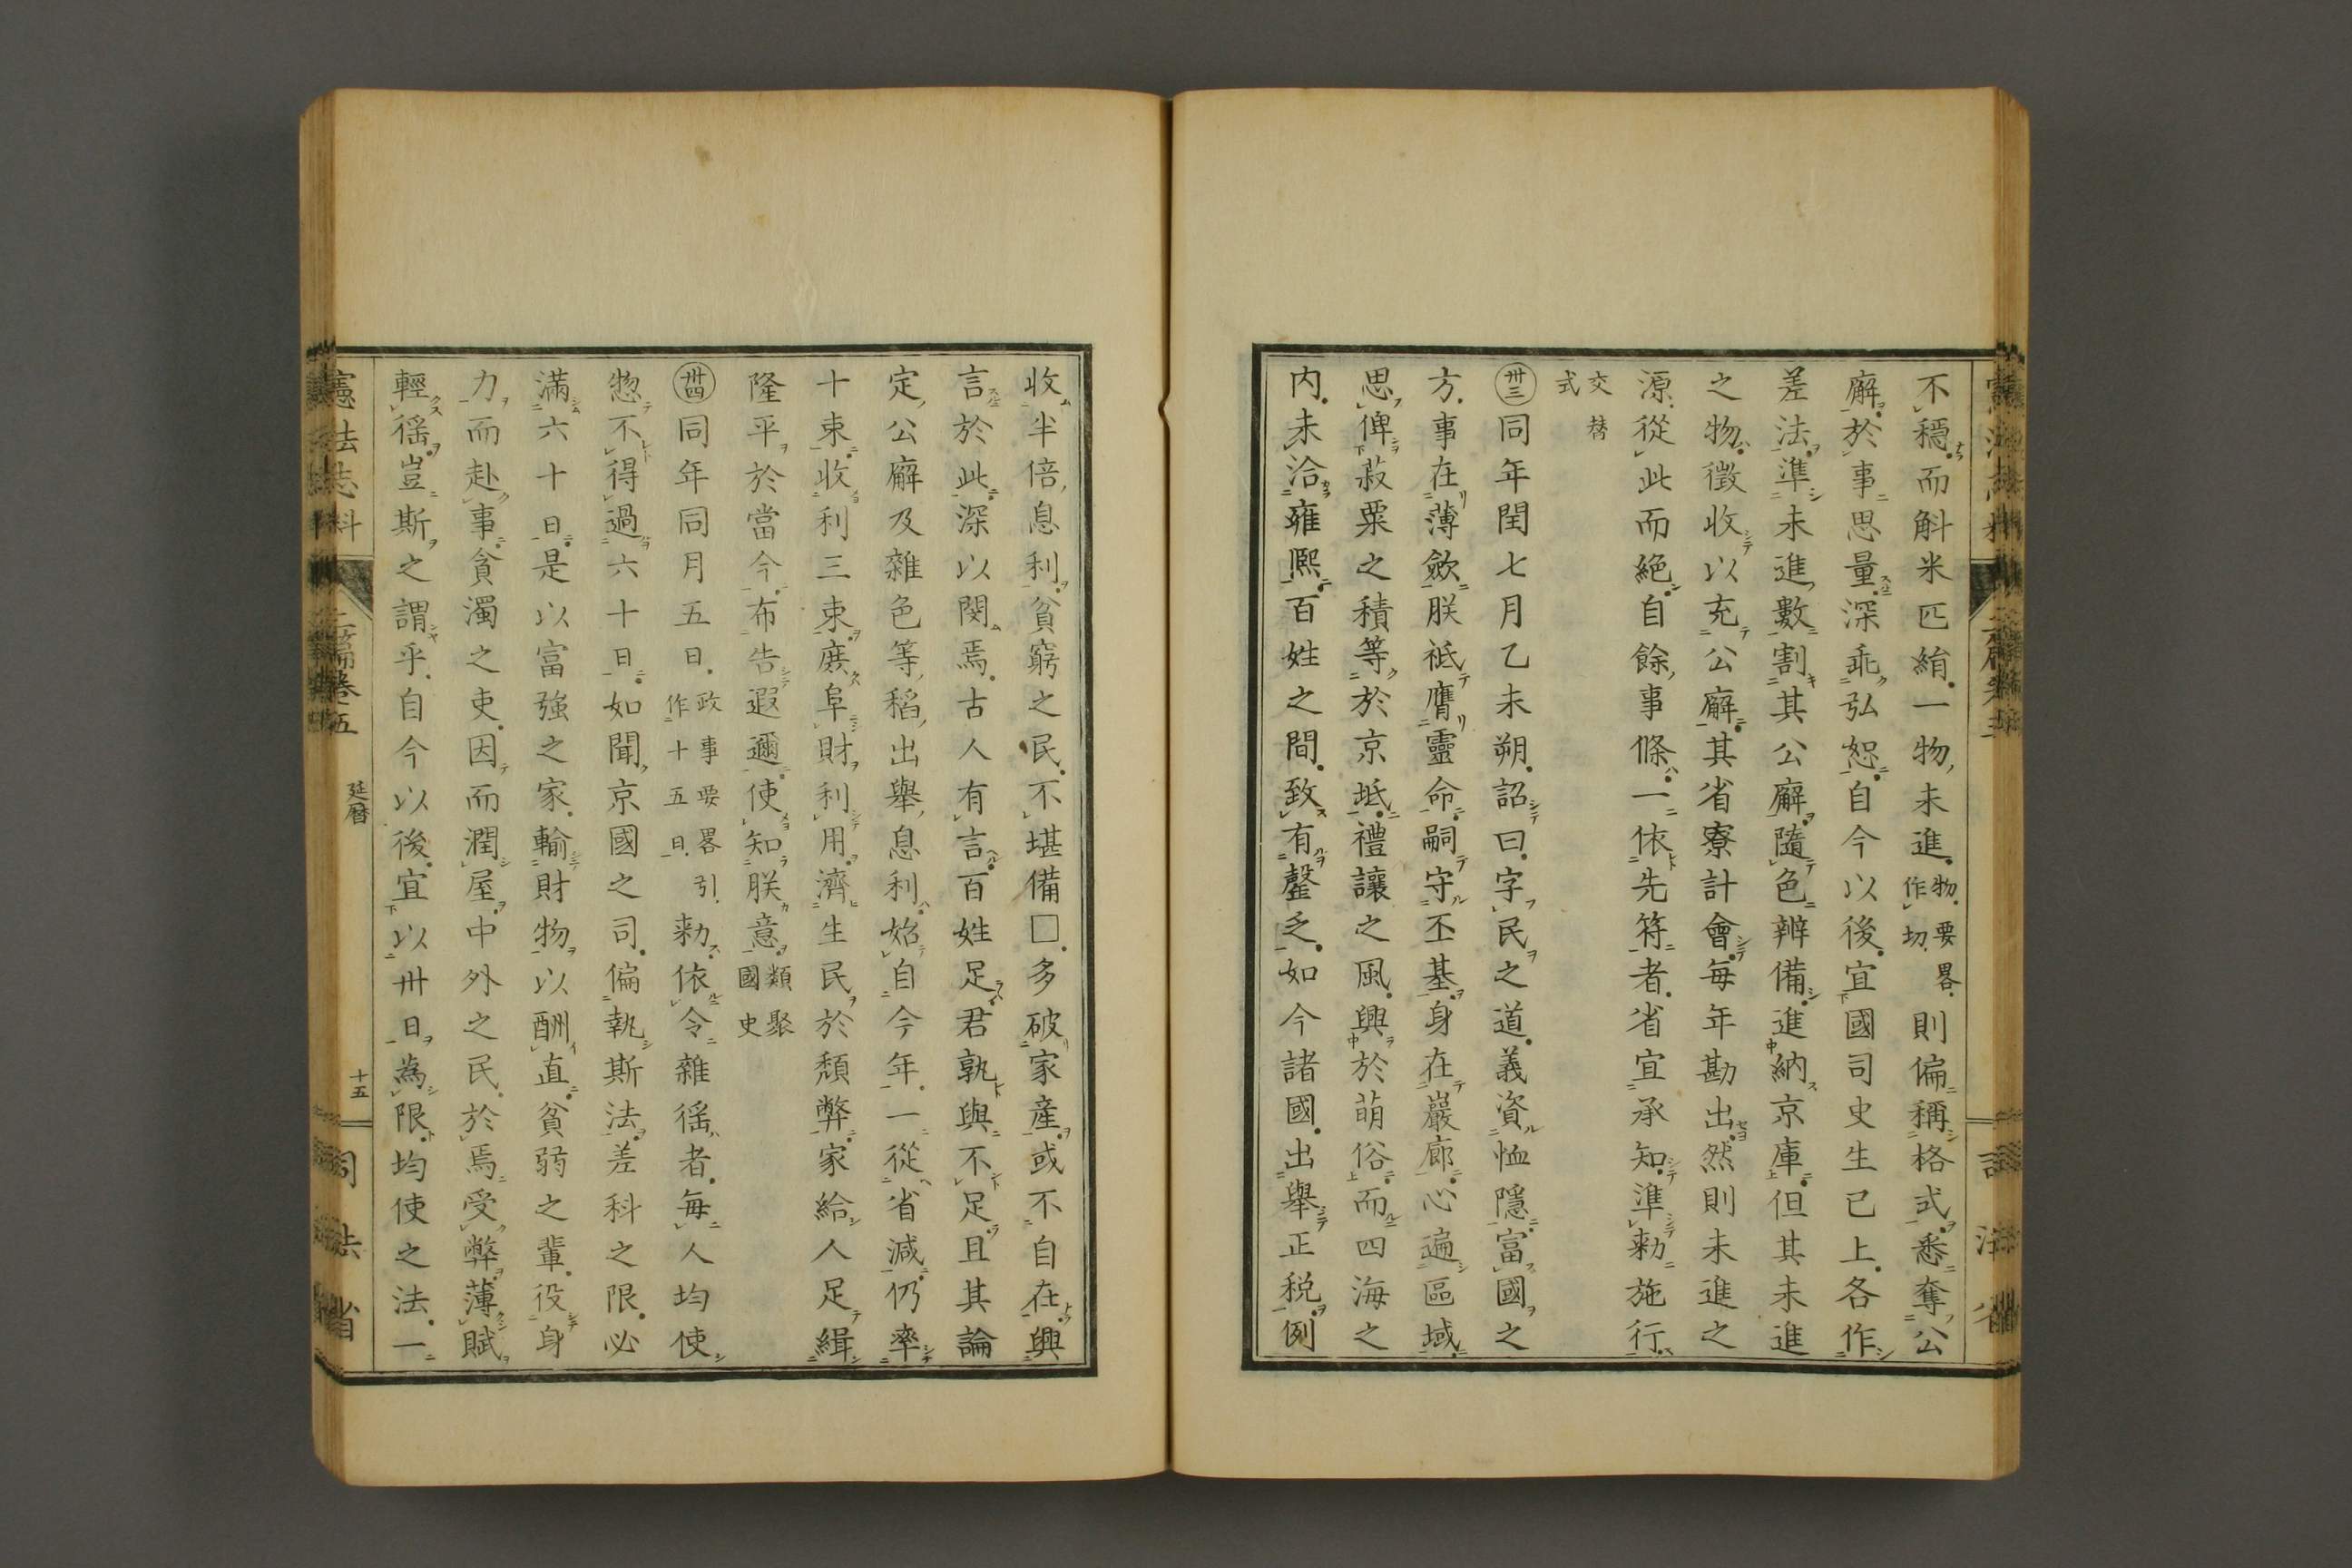 不穩而斛米匹絹一物未進物要畧作切則偏稱格式悉奪公
廨於事思量深乖弘恕自今以後宜國司史生已上各作
差法準未進數割其公廨隨色辨備進納京庫但其未進
之物徵收以充公廨其省寮計會每年勘出然則未進之
源從此而絕自餘事條一依先符者省宜承知準勅施行
交替式
卅三同年閏七月乙未朔詔曰字民之道義資恤隱富國之
方事在薄斂朕祗膺靈命嗣守丕基身在巖廊心遍區域
思俾菽粟之積等於京坻禮讓之風興於萌俗而四海之
內未洽雍熙百姓之間致有罄乏如今諸國出擧正税例
收半倍息利貧窮之民不堪備□多破家産或不自在興
言於此深以閔焉古人有言百姓足君孰與不足且其論
定公廨及雜色等稻出擧息利始自今年一從省減仍率
十束收利三束庶阜財利用濟生民於頽弊家給人足緝
隆平於當今布告遐邇使知朕意類聚國史
卅四同年同月五日政事要畧引作十五日勅依令雜徭者每人均使
惣不得過六十日如聞京國之司偏執斯法差科之限必
滿六十日是以富強之家輸財物以酬直貧弱之輩役身
力而赴事貧濁之吏因而潤屋中外之民於焉受弊薄賦
輕徭豈斯之謂乎自今以後宜以卅日為限均使之法一
憲法志料 二篇卷五 延曆 十五 司法省